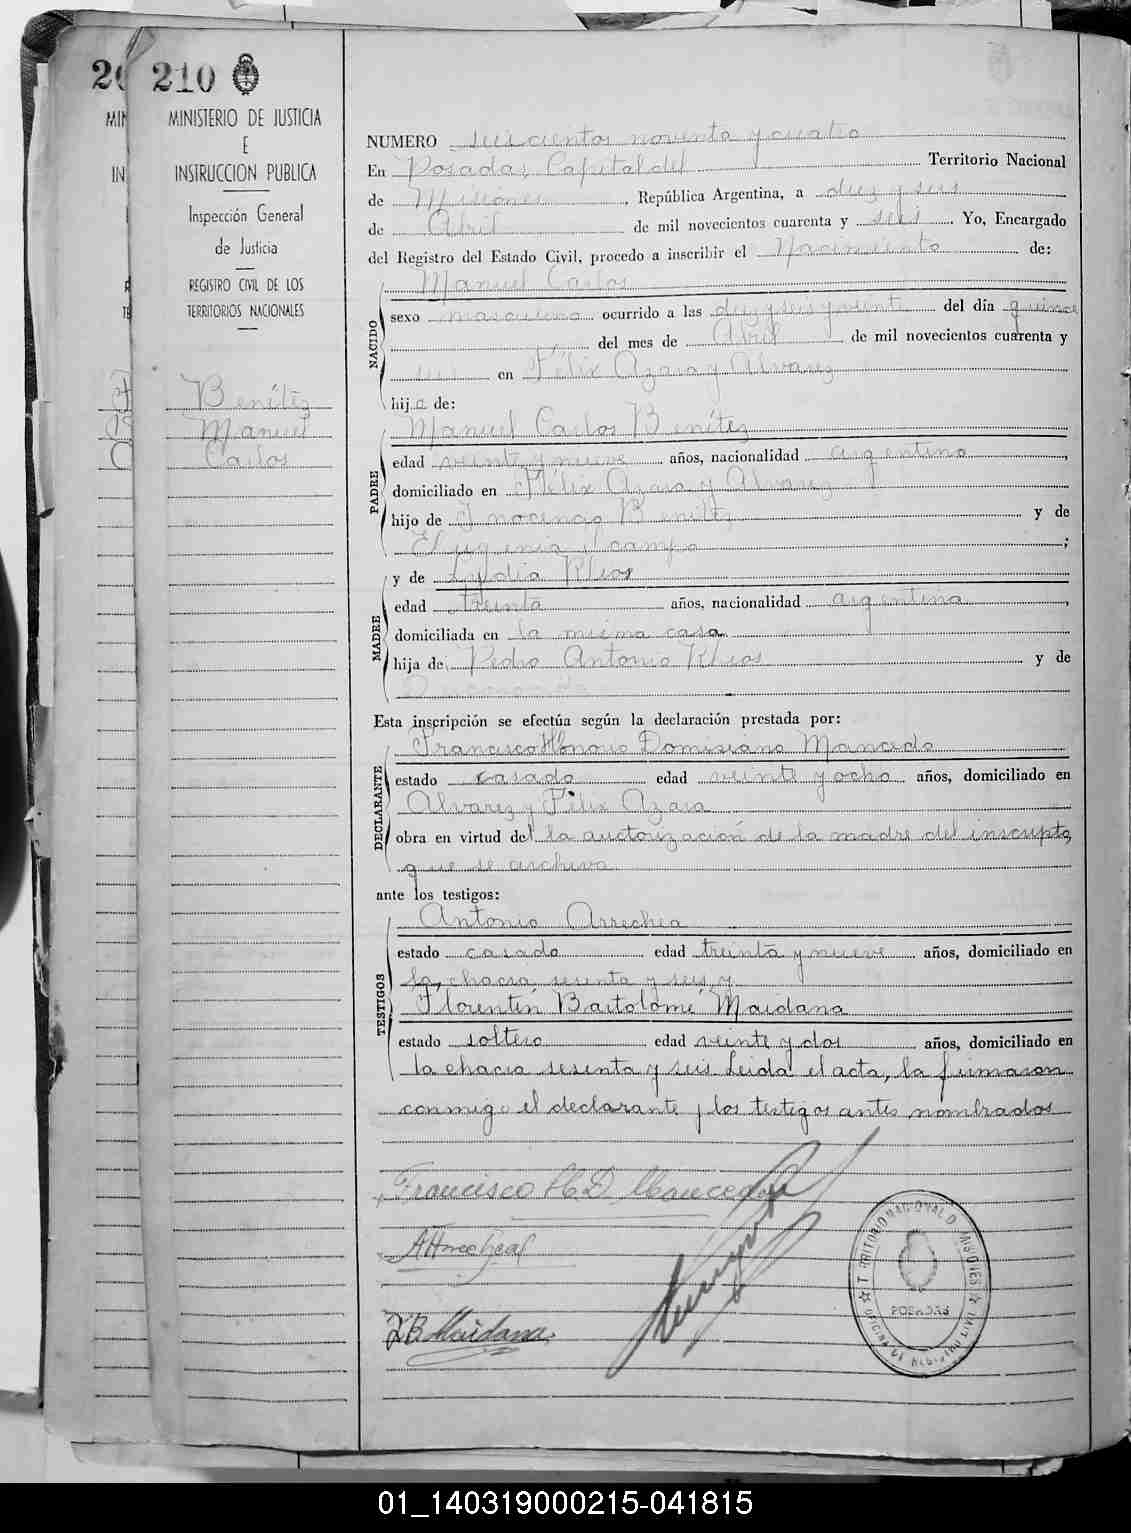 210
MINISTERIO DE JUSTICIA
E
INSTRUCCION PUBLICA
Inspección General
de Justicia
REGISTRO CIVIL DE LOS
TERRITORIOS NACIONALES
Benítez
Manuel
Carlos
NUMERO seiscientos noventa y cuatro
En Posadas, Capital del Territorio Nacional
de Misiones, República Argentina, a diez y seis
de Abril de mil novecientos cuarenta y seis. Yo, Encargado
del Registro del Estado Civil, procedo a inscribir el Nacimiento de:
NACIDO
Manuel Carlos
sexo masculino ocurrido a las diez y seis y veinte del día quince
del mes de Abril de mil novecientos cuarenta y
seis en Félix Azara y Alvarez
hijo de:
PADRE
Manuel Carlos Benítez
edad veinte y nueve años, nacionalidad argentino,
domiciliado en Félix Azara y Alvarez
hijo de Inocencio Benítez y de
Ocampo;
MADRE
y de Lydia Rios
edad treinta años, nacionalidad argentina,
domiciliada en la misma casa
hija de Pedro Antonio Rios y de
Esta inscripción se efectúa según la declaración prestada por:
DECLARANTE
Francisco Honorio Domiciano Mancedo
estado casado edad veinte y ocho años, domiciliado en
Alvarez y Félix Azara
obra en virtud de la auctorización de la madre del inscripto,
que se archiva
ante los testigos:
TESTIGOS
Antonio Arrechea
estado casado edad treinta y nueve años, domiciliado en
la chacra sesenta y seis y
Florentín Bartolomé Maidana
estado soltero edad veinte y dos años, domiciliado en
la chacra sesenta y seis Leida el acta, la firmaron
conmigo el declarante y los testigos antes nombrados
Francisco H D Mancedo
A Arrechea
F B Maidana
TERRITORIO NACIONAL DE MISIONES
POSADAS
01_140319000215-041815